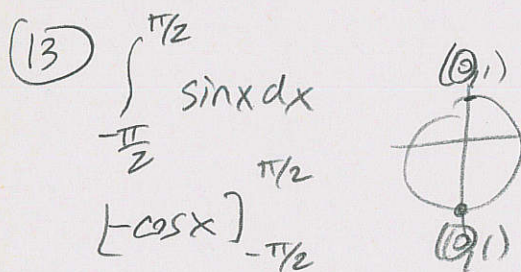 13
∫_{-π/2}^{π/2} sinx dx
[-cosx]_{-π/2}^{π/2}
(0,1)
(0,1)